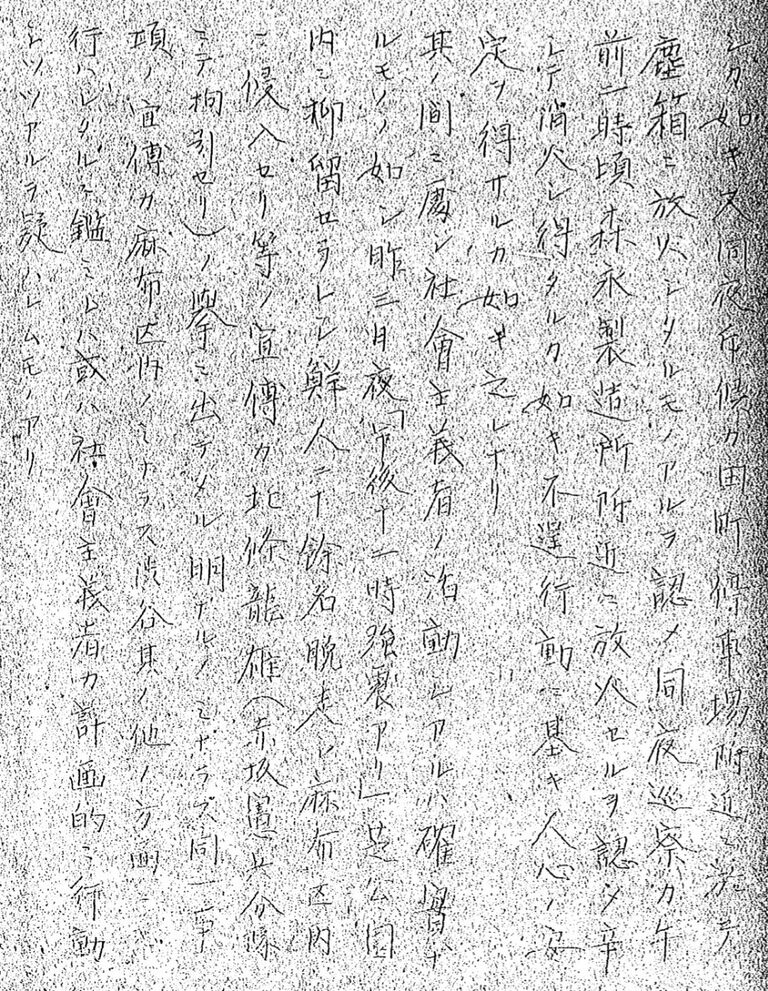 シカ如キ又同夜斥候カ田町停車場附近ニ於テ
塵箱ニ放火シタルモノアルヲ認メ同夜巡察カ午
前一時頃森永製造所附近ニ放火セルヲ認メ辛
シテ消火シ得タルカ如キ不逞行動ニ基キ人心ノ安
定ヲ得サルカ如キ之レナリ
其ノ間ニ處シ社會主義者ノ活動シアルハ確實ナ
ルモノノ如シ昨三日夜「午後十一時強震アリ」芝公園
内ニ抑留セラレシ鮮人二十餘名脱走シ麻布区内
ニ侵入セリ等ノ宣傳カ北條龍雄(赤坂憲兵分隊
ニテ拘引セリ)ノ擧ニ出テタル明ナルノミナラズ同一事
項ノ宣傳カ麻布区内ノミナラス渋谷其ノ他ノ方面ニ
行ハレタルニ鑑ミレハ或ハ社會主義者カ計画的ニ行動
シツツアルヲ疑ハレムモノアリ